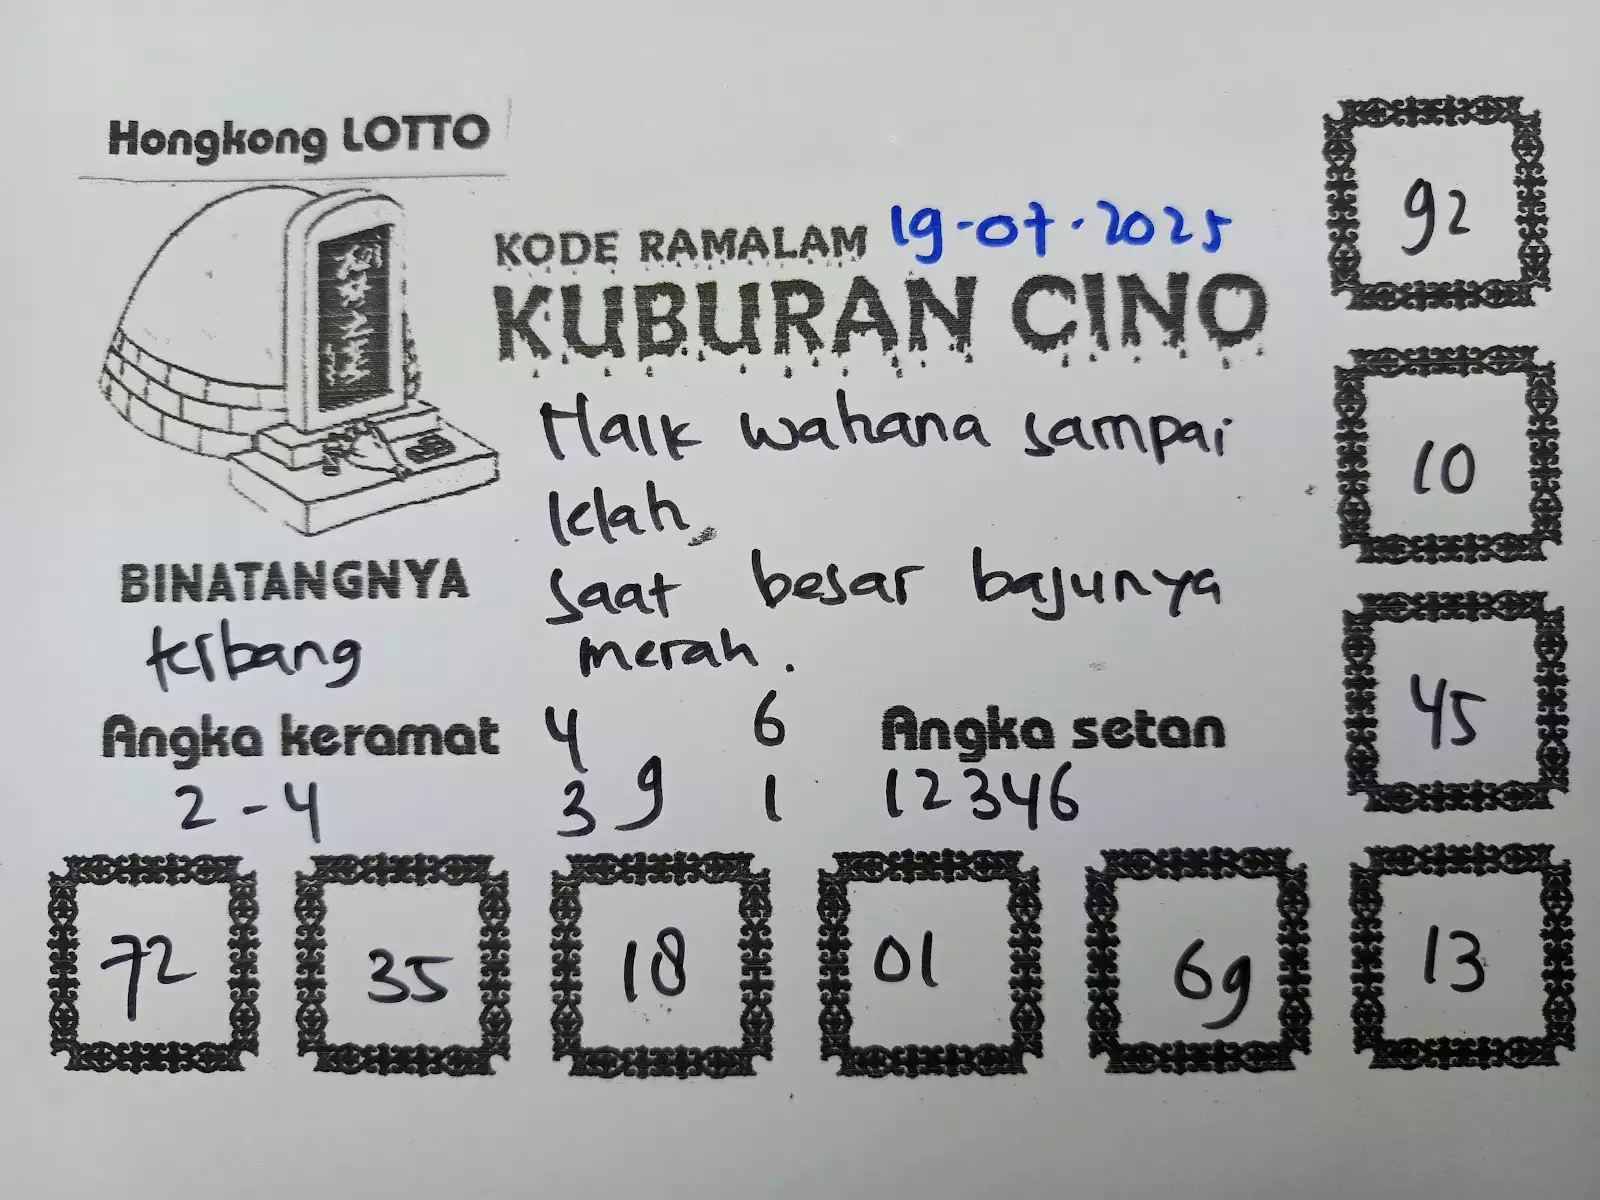 Hongkong LOTTO
KODE RAMALAM 19-07-2025
KUBURAN CINO
Naik wahana sampai
lelah
saat besar bajunya
merah.
BINATANGNYA
terbang
Angka keramat
2-4
4 6
3 9 1
Angka setan
12346
92
10
45
72 35 18 01 69 13